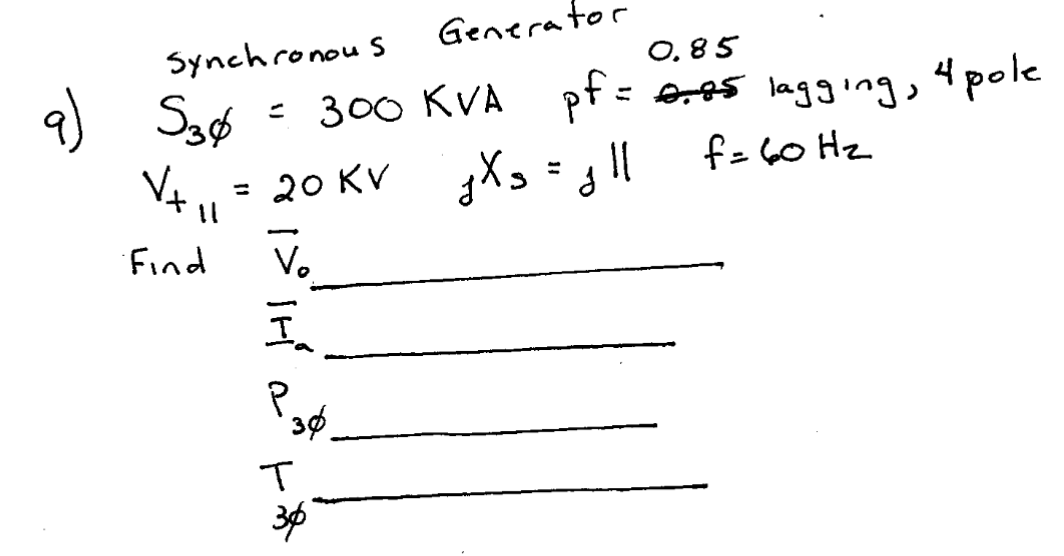 Synchronous Generator
0.85
9) S3φ = 300 KVA pf = 0.85 lagging, 4 pole
Vt11 = 20 KV jXs = j11 f = 60 Hz
Find V̅o
I̅a
P3φ
T
3φ